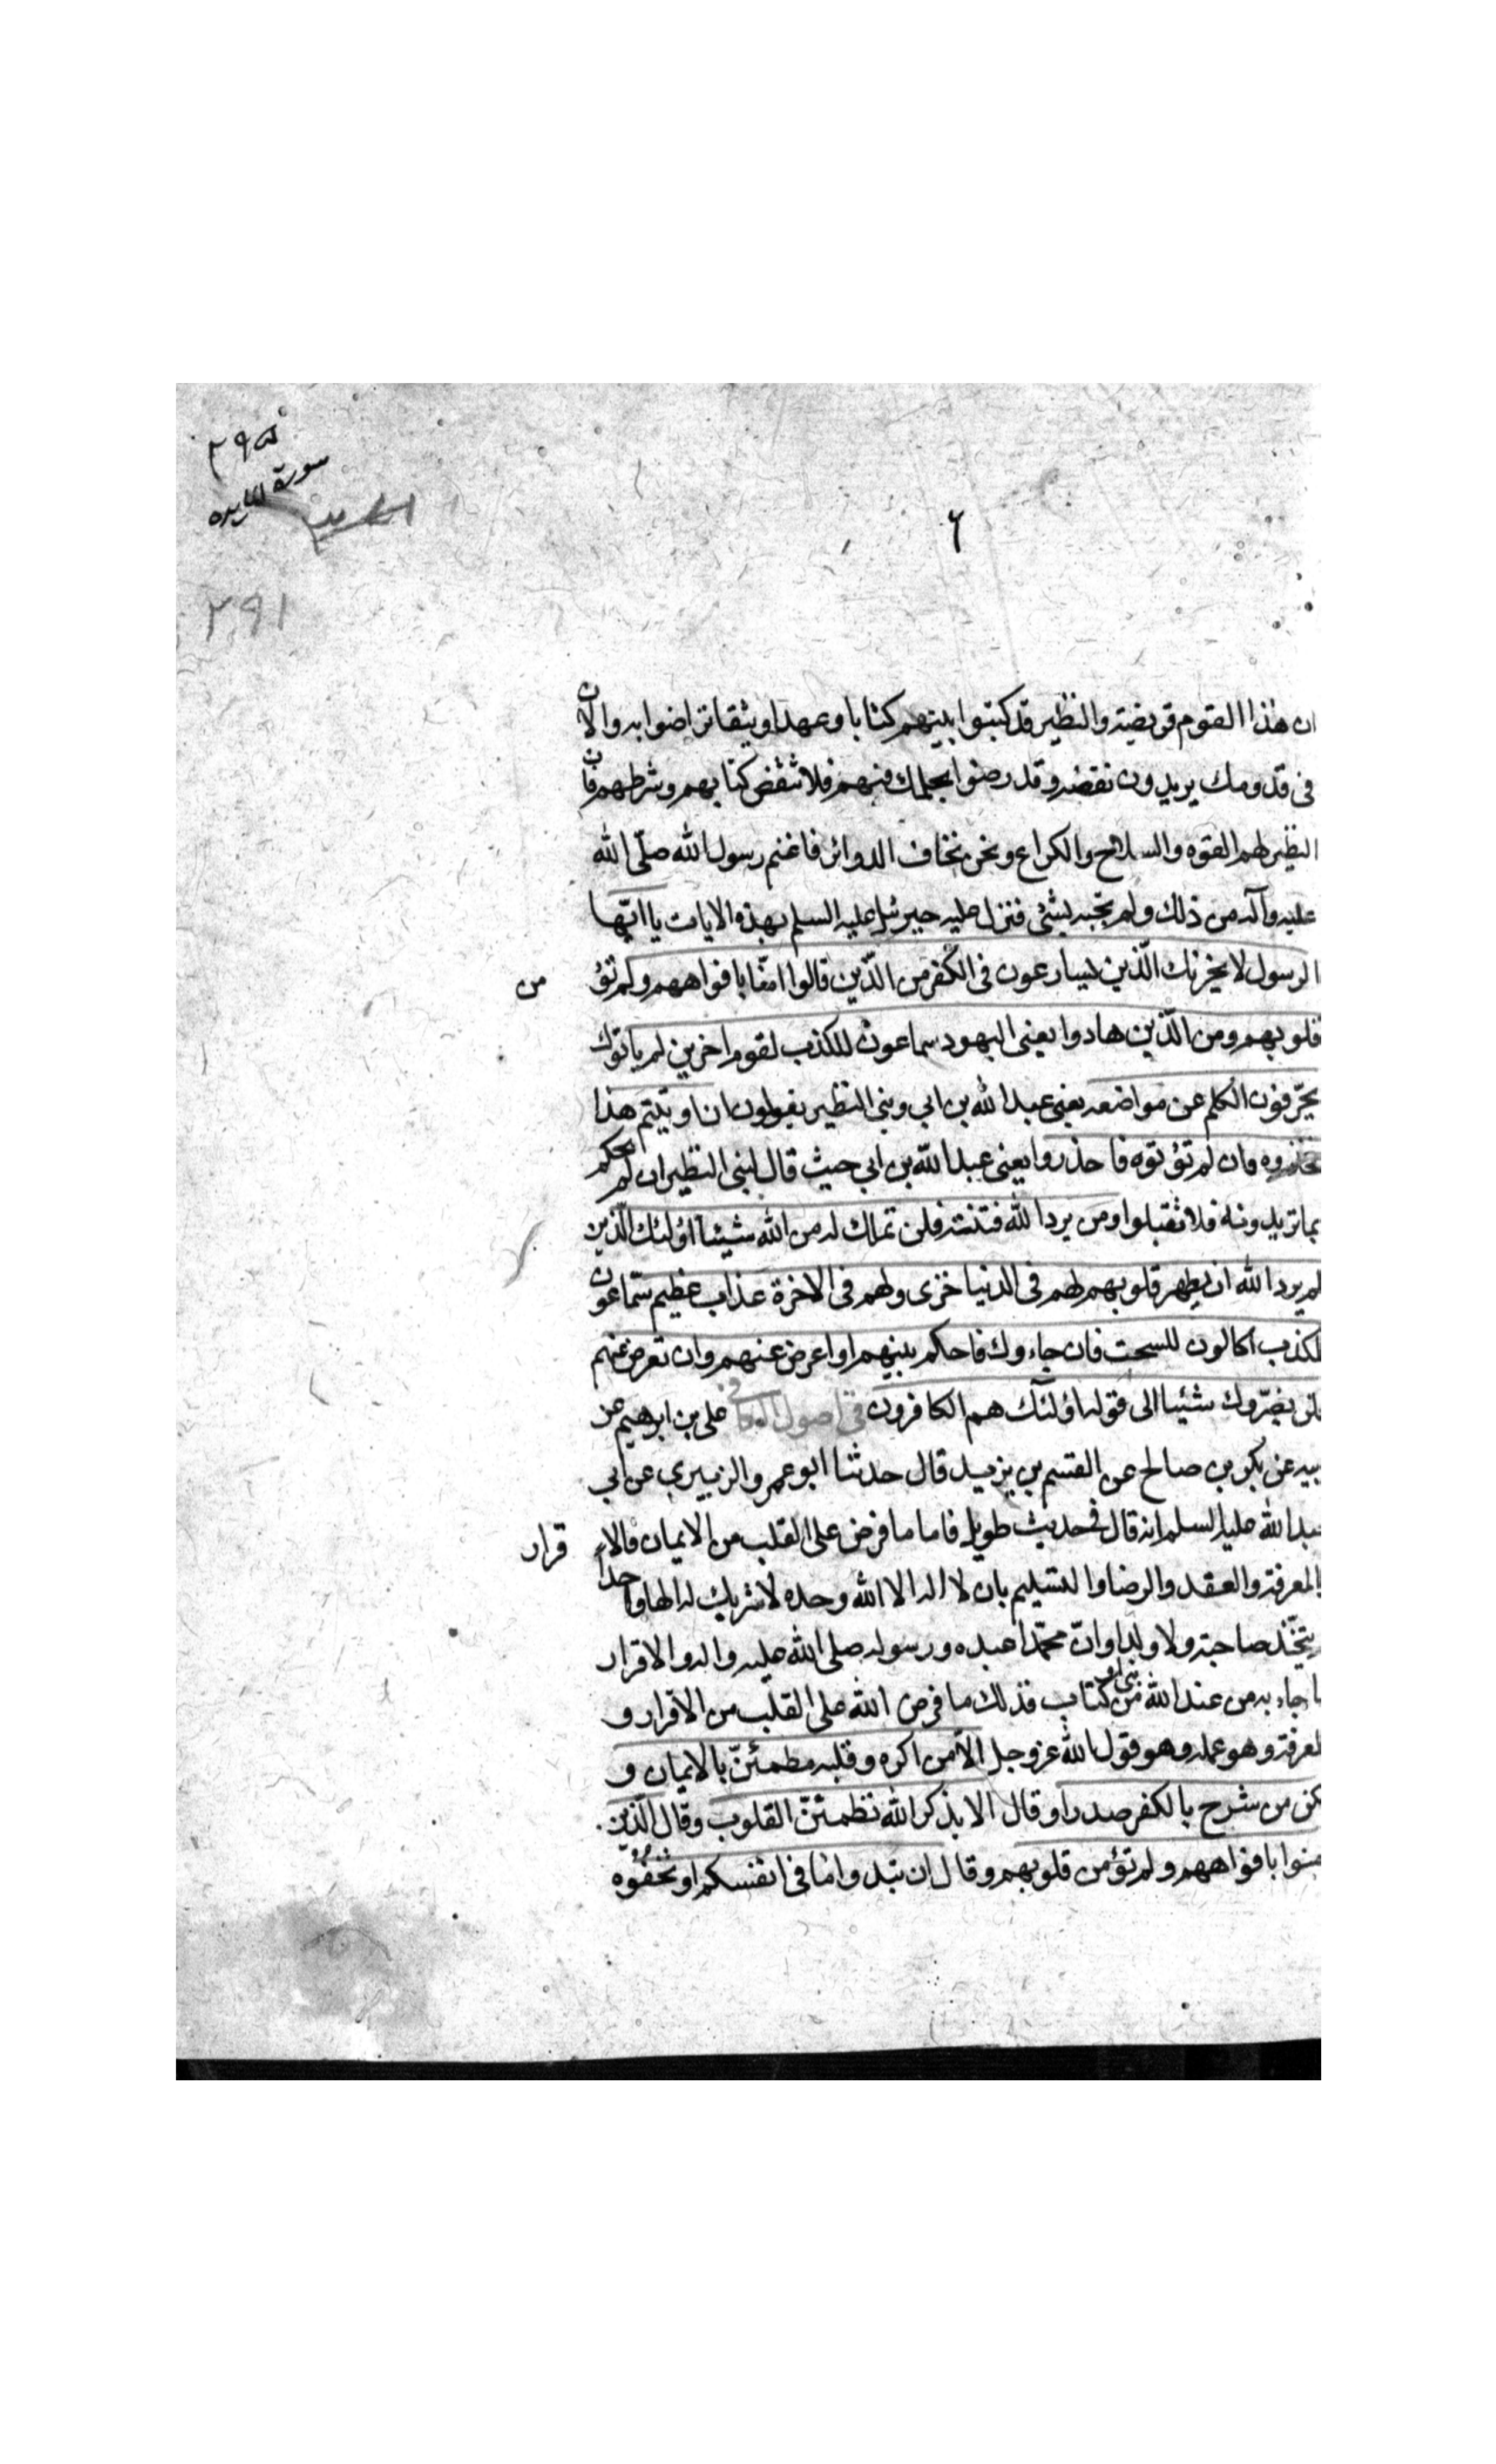 سورة المايده
٢٩١
٦
ان هذا القوم قريضة والنظير قد كتبوا بينهم كتابا وعهدا وثيقا تراضوا به والان
فى قدومك يريدون نقضه وقد رضوا بحكمك فيهم فلا تنقض كتابهم وشرطهم فان
النظير لهم القوة والسلاح والكراع ونحن نخاف الدوائر فاغتم رسول الله صلّى الله
عليه وآله من ذلك ولم يجبه بشئى فنزل عليه جبرئيل عليه السلم بهذه الايات يا ايّها
الرسول لا يحزنك الّذين يسارعون فى الكفر من الّذين قالوا امنّا بافواههم ولم تؤ من
قلوبهم ومن الّذين هادوا يعنى اليهود سماعون للكذب لقوم اخرين لم ياتوك
يحرّفون الكلم عن مواضعه يعنى عبد الله بن ابى وبنى النظير يقولون ان اوتيتم هذا
فخذوه وان لم تؤتوه فاحذروا يعنى عبد الله بن ابي حيث قال لبنى النظير ان لم يحكم
بما تريدونه فلا تقبلوا ومن يرد الله فتنته فلن تملك له من الله شيئا اؤلئك الّذين
لم يرد الله ان يطهر قلوبهم لهم فى الدنيا خزى ولهم فى الاخرة عذاب عظيم سمّاعون
للكذب اكالون للسحت فان جاءوك فاحكم بينهم او اعرض عنهم وان تعرض عنهم
فلن يضرّوك شيئا الى قوله اؤلئك هم الكافرون فى اصول الكافى على بن ابرهيم عن
بيه عن بكر بن صالح عن القسم بن يزيد قال حدثنا ابو عمرو الزبيرى عن ابي
عبد الله عليه السلم انه قال فى حديث طويل فاما ما فرض على القلب من الايمان فالا قرار
والمعرفة والعقد والرضا والتسليم بان لا اله الا الله وحده لا شريك له الها واحدا
يتخّذ صاحبة ولا ولدا وانّ محمّدا عبده ورسوله صلى الله عليه واله والاقرار
ا جاء به من عند الله من نبى او كتاب فذلك ما فرض الله على القلب من الاقرار و
لمعرفة وهو عمله وهو قول الله عز وجل الاّ من اكره وقلبه مطمئنّ بالايمان و
كن من شرح بالكفر صدرا وقال الا بذكر الله تطمئنّ القلوب وقال الّذين
منوا بافواههم ولم تؤمن قلوبهم وقال ان تبدوا ما فى انفسكم او تخفوه